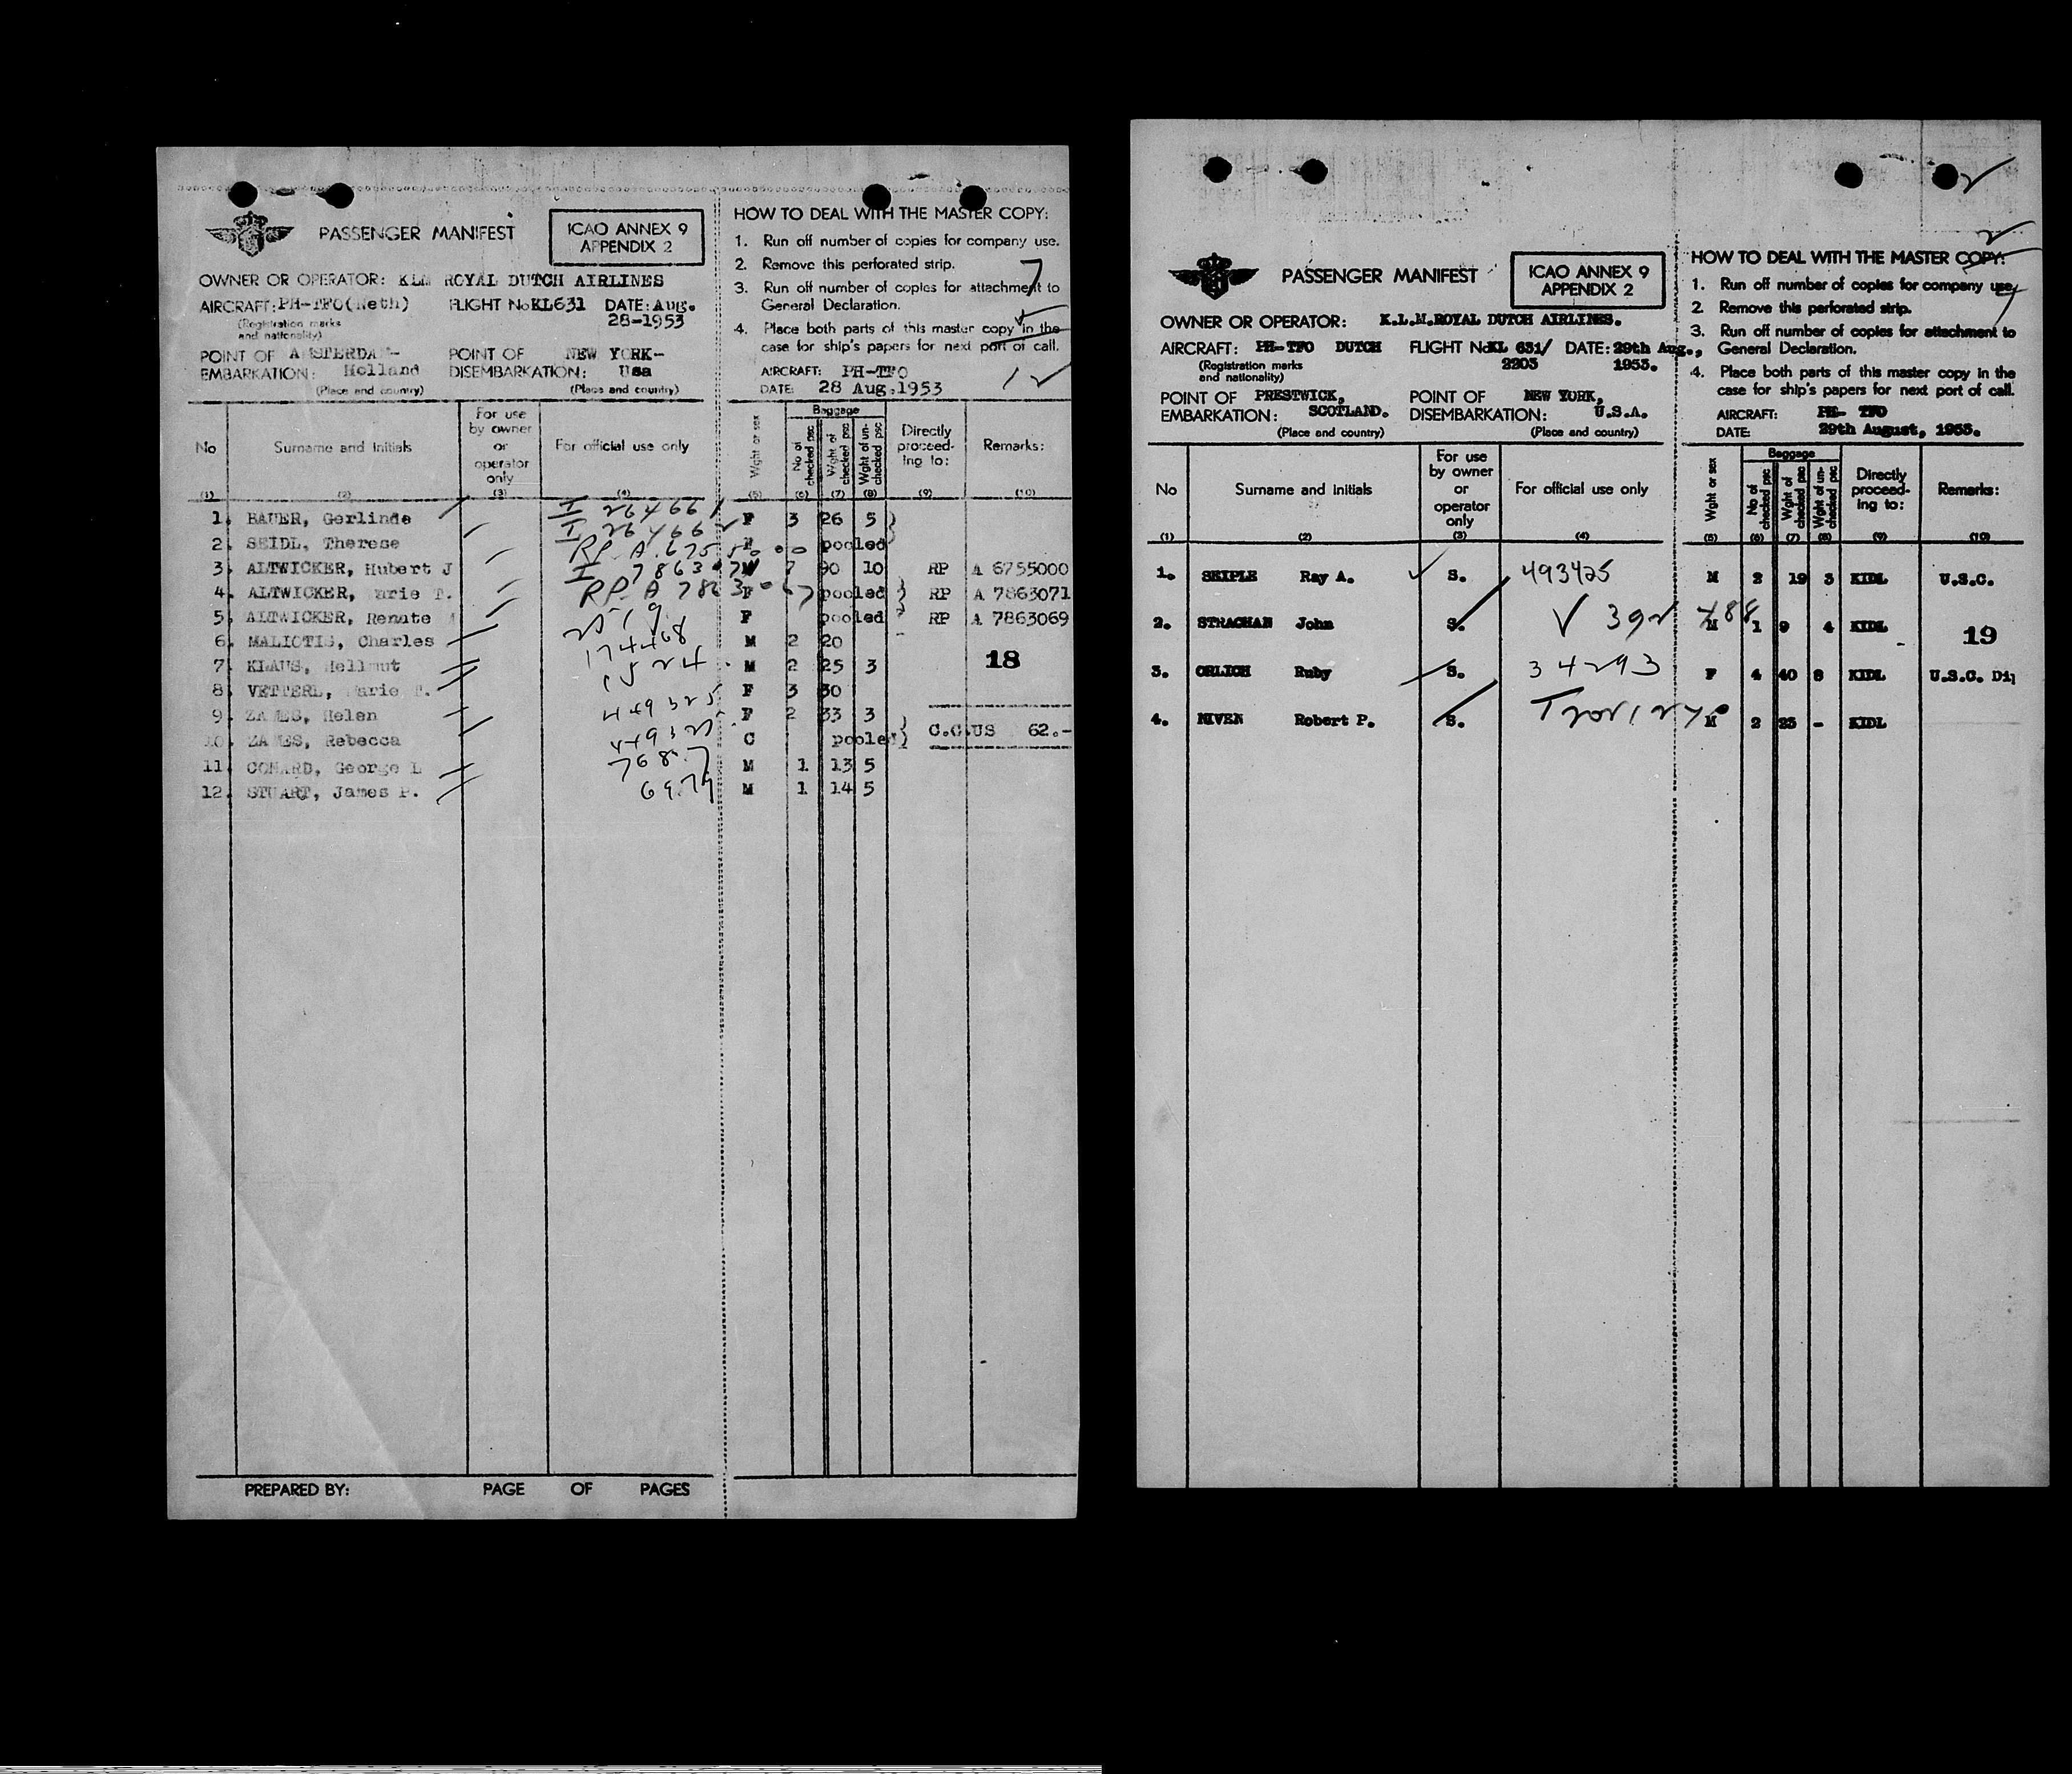 PASSENGER MANIFEST
ICAO ANNEX 9
APPENDIX 2
OWNER OR OPERATOR: KLM ROYAL DUTCH AIRLINES
AIRCRAFT: PH-TFO(Neth) FLIGHT No KL631 DATE: Aug.
28-1953
(Registration marks
and nationality)
POINT OF AMSTERDAM- POINT OF NEW YORK-
EMBARKATION: Holland DISEMBARKATION: Usa
(Place and country) (Place and country)
HOW TO DEAL WITH THE MASTER COPY:
1. Run off number of copies for company use.
2. Remove this perforated strip.
3. Run off number of copies for attachment to
General Declaration.
4. Place both parts of this master copy in the
case for ship's papers for next port of call.
AIRCRAFT: PH-TFO
DATE: 28 Aug.1953
No Surname and Initials For use by owner or operator only For official use only Wght or sex Baggage No of checked psc Wght of checked psc Wght of un-checked psc Directly proceed-ing to: Remarks:
(1) (2) (3) (4) (5) (6) (7) (8) (9) (10)
1. BAUER, Gerlinde I 264661 F 3 26 5
2. SEIDL, Therese I 264662 F pooled
3. ALTWICKER, Hubert J 7 90 10 RP A 6755000
4. ALTWICKER, Marie T. F pooled RP A 7863071
5. ALTWICKER, Renate F pooled RP A 7863069
6. MALIOTIS, Charles M 2 20
7. KLAUS, Hellmut M 2 25 3
18
8. VETTERL, Marie T. F 3 30
9. ZAMES, Helen F 2 33 3
10. ZAMES, Rebecca C pooled C.C.US 62.-
11. COMARD, George L M 1 13 5
12. STUART, James P. M 1 14 5
PREPARED BY: PAGE OF PAGES
PASSENGER MANIFEST
ICAO ANNEX 9
APPENDIX 2
OWNER OR OPERATOR: K.L.M.ROYAL DUTCH AIRLINES.
AIRCRAFT: PH-TFO DUTCH FLIGHT No KL 631/ DATE: 29th Aug.,
2203 1953.
(Registration marks
and nationality)
POINT OF PRESTWICK, POINT OF NEW YORK,
EMBARKATION: SCOTLAND. DISEMBARKATION: U.S.A.
(Place and country) (Place and country)
HOW TO DEAL WITH THE MASTER COPY:
1. Run off number of copies for company use.
2. Remove this perforated strip.
3. Run off number of copies for attachment to
General Declaration.
4. Place both parts of this master copy in the
case for ship's papers for next port of call.
AIRCRAFT: PH- TFO
DATE: 29th August, 1953.
No Surname and Initials For use by owner or operator only For official use only Wght or sex Baggage No of checked psc Wght of checked psc Wght of un-checked psc Directly proceed-ing to: Remarks:
(1) (2) (3) (4) (5) (6) (7) (8) (9) (10)
1. SEIPLE Ray A. S. 493425 M 2 19 3 KIDL U.S.C.
2. STRACHAN John S. M 1 9 4 KIDL
19
3. ORLICH Ruby S. 34293 F 4 40 8 KIDL U.S.C.
4. NIVEN Robert P. S. M 2 23 - KIDL